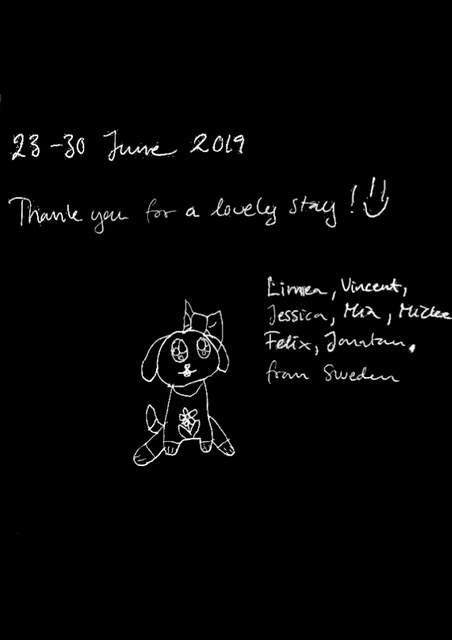 23-30 June 2019
Thank you for a lovely stay!
Linnea, Vincent,
Jessica, Mia, Micke
Felix, Jonatan.
from Sweden